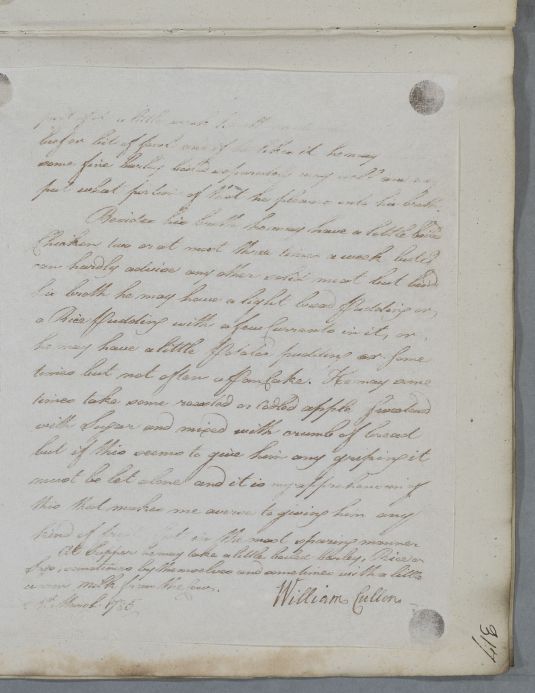 a little weak broth
beef or bit of fowl and if he likes it he may
some fine barley boiled separately very well and
put what portion of that he pleases into his broth.
Besides his broth he may have a little boild
Chicken two or at most three times a week but I
can hardly advise any other solid meat but
his broth he may have a light bread Pudding or,
a Rice Pudding with a few Currants in it, or.
he may have a little Potatoe pudding or Some
times but not often a Pancake. He may some
times take some roasted or codled apple sweetend
with Sugar and mixed with crumb of bread
but if this seems to give him any griping it
must be let alone and it is my apprehension of
this that makes me averse to giving him any
kind of fruit but in the most sparing manner
At Supper he may take a little boiled Barley, Rice or
Sago, sometimes by themselves and sometimes with a little
warm milk from the Cow.
William Cullen
March 178
317